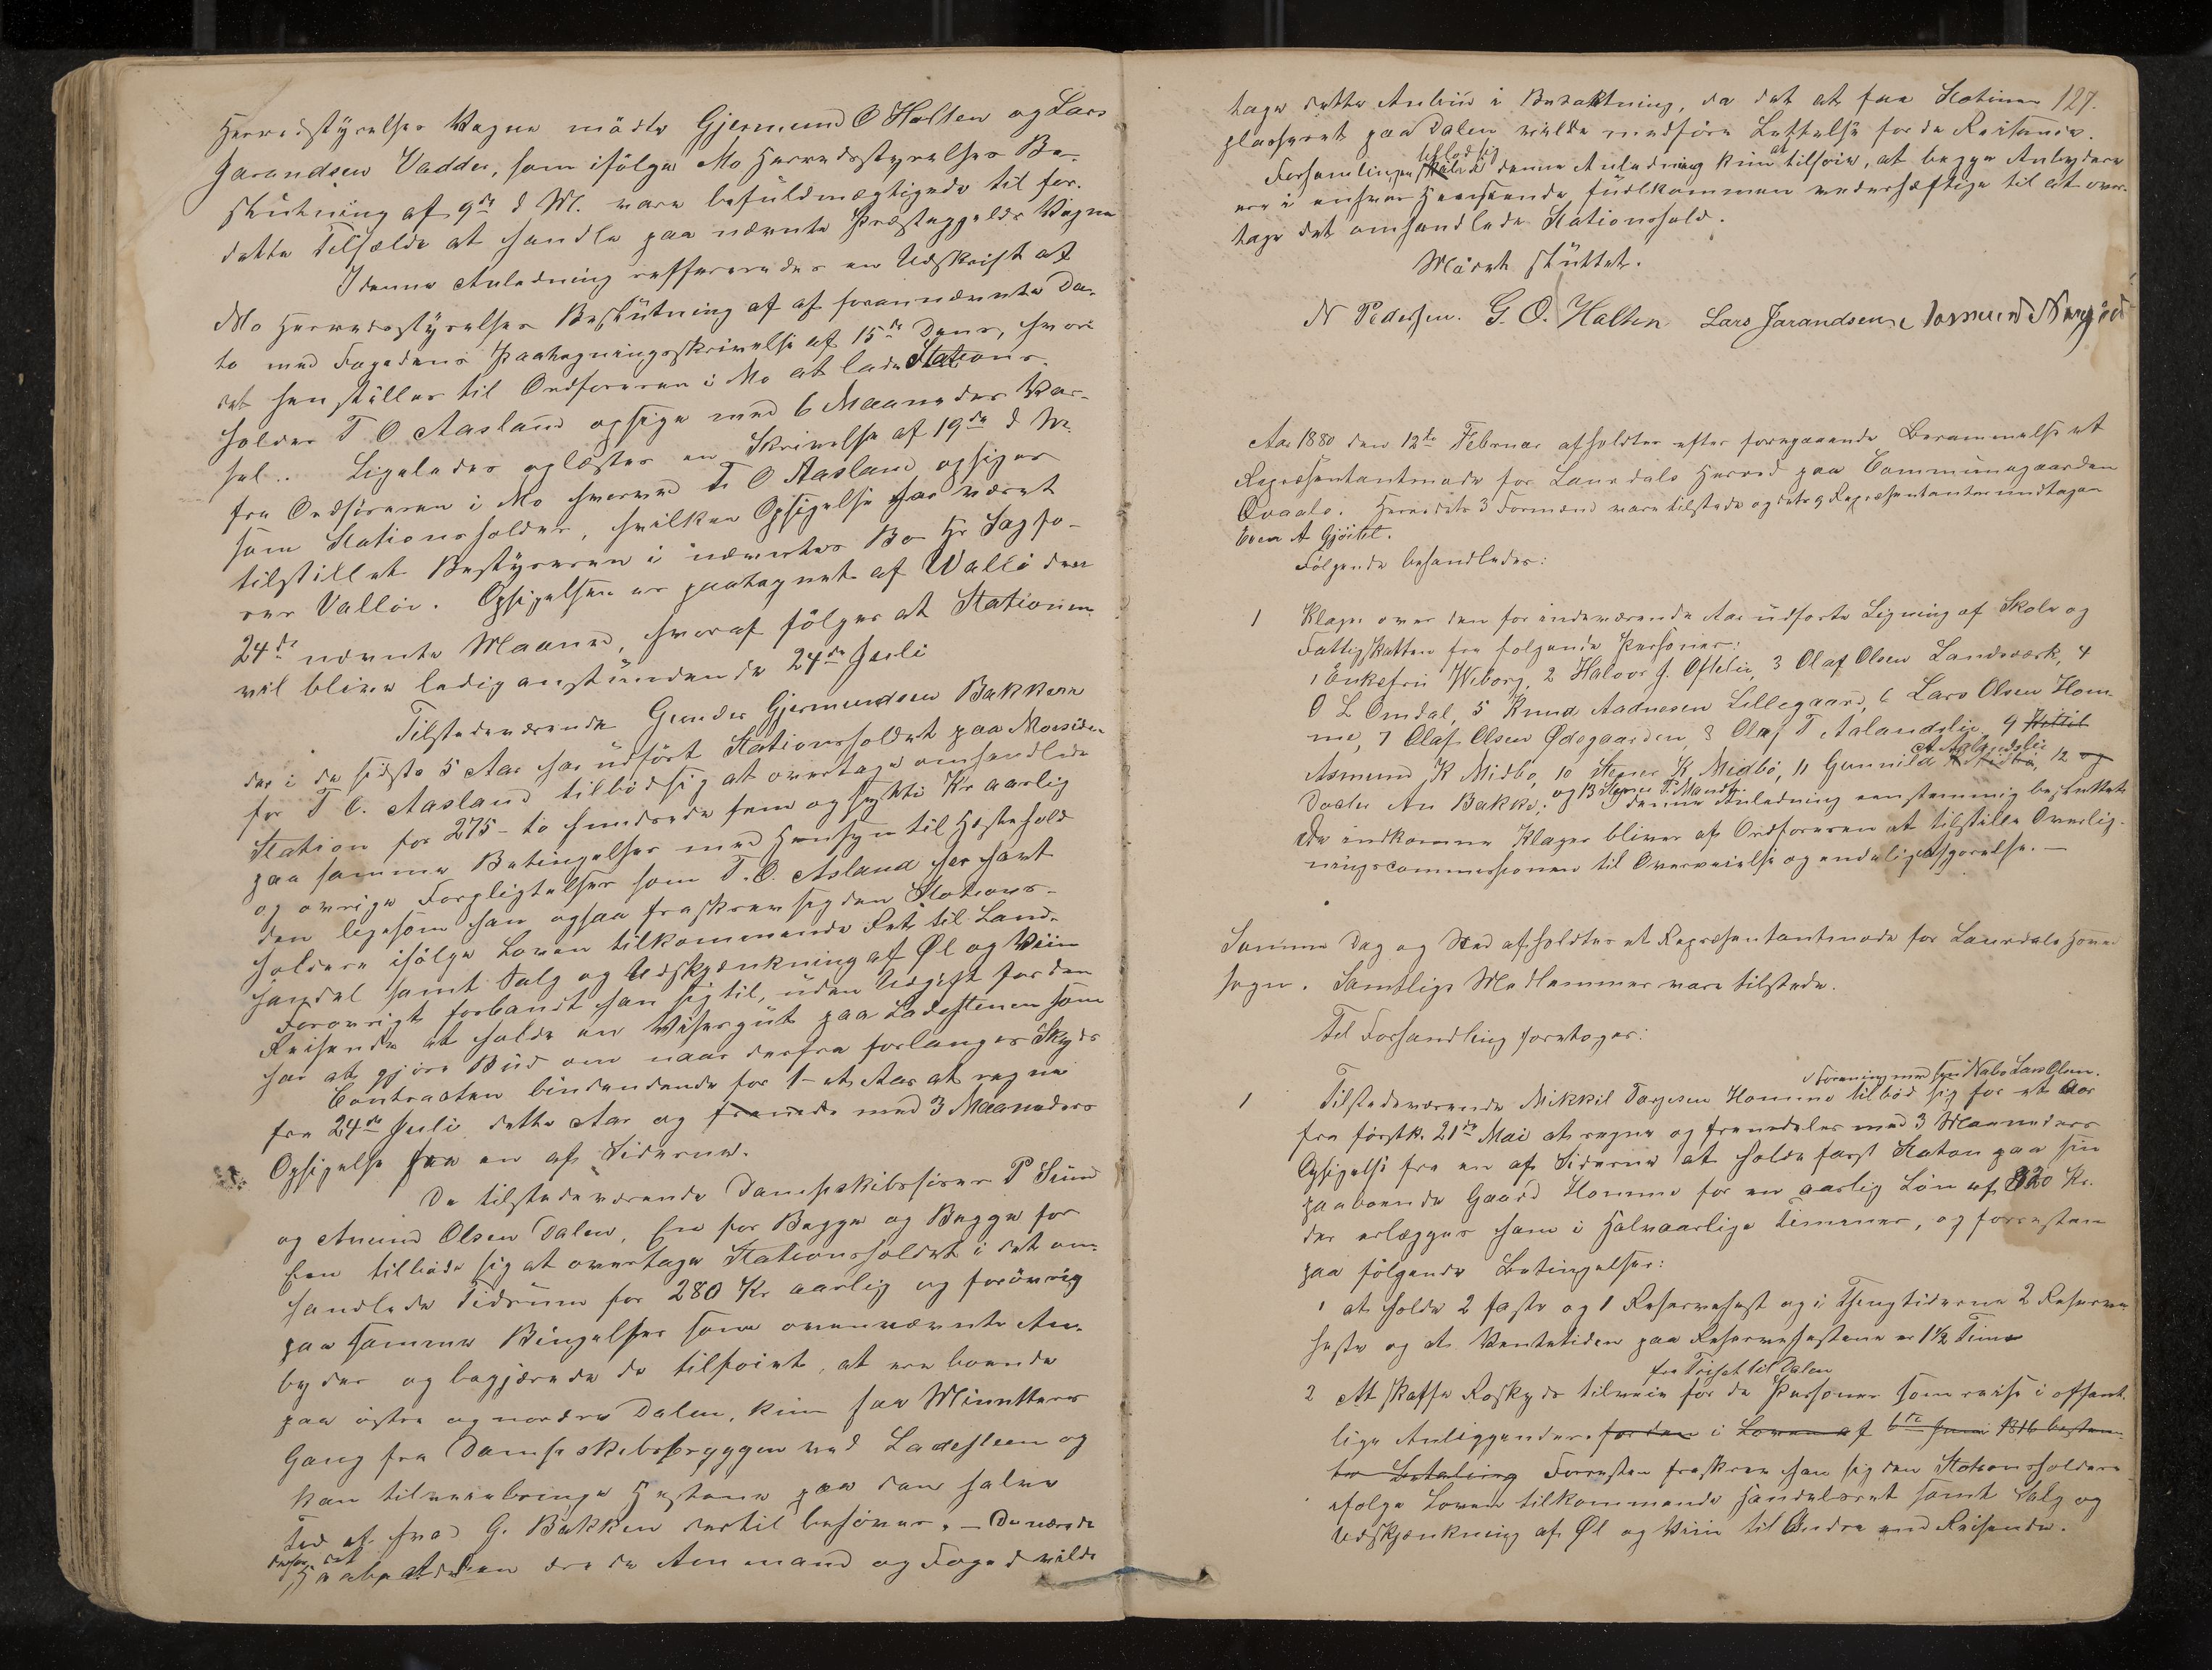 Herredstyrelses Vegne mödte Gjermund O Holten og Lars
Jarandsen Vadder, som ifölge Mo Herredsstyrelses Be-
slutning af 9de d M. vare befuldmægtigede til for
dette Tilfælde at handle paa nævnte Præstegjelds Vegne
I denne Anledning reffereredes en Udskrift af
Mo Herredsstyrelses Beslutning af af forannævnte Da-
to med Fogedens Paategningsskrivelse af 15de dens, hvori
det henstilles til Ordföreren i Mo at lade Stations-
holder T O Aasland opsige med 6 Maaneders Var-
sel. Ligeledes oplæstes en Skrivelse af 19de d M.
fra Ordföreren i Mo hvorved T O Aasland opsiges
som Stationsholder, hvilken Opsigelse har været
tilstillet Bestyreren i nævntes Bo Hr Sagfö-
rer Vallöi. Opsigelsen er paategnet af Wallö den
24de nævnte Maaned, hvoraf fölger at Stationen
vil blive ledig anstundende 24de Juli
Tilstedeværende Gunder Gjermundsen Bakken
der i de sidste 5 Aar har udfört Stationsholdet paa Mosiden
for T O. Aasland tilböd sig at overtage omhandlede
Station for 275 - to hundrede fem og sytti Kr aarlig
paa samme Betingelser med Hensyn til Hestehold
og övrige Forpligtelser som T. O. Asland har havt
den ligesom han ogsaa fraskrev sig den Stations-
holdere ifölge Loven tilkommende Ret til Land-
handel samt Salg og Udskjænkning af Øl og Viin
Forövrigt forbandt han sig til, uden Udgift for den
Reisende at holde en Visergut paa Ladestenen som
har at gjöre Bud om naar derfra forlanges Skyds
Contracten bindende for 1 - et Aar at regne
fra 24de Juli dette Aar og fremdes med 3 Maaneders
Opsigelse fra en af Siderne.
De tilstedeværende Dampskibsförer P Sund
og Amund Olsen Dalen, En for Begge og Begge for
Een tilböde sig at overtage Stationsholdet i det om-
handlede Tidsrum for 280 Kr aarlig og forövrig
paa samme Bingelser som ovennævnte An-
byder og begjærede de tilföiet, at ere boende
paa östre og nordre Dalen, kun faa Minutters
Gang fra Dampskibsbryggen ved Ladesteen og
kan tilveiebringe Hestene paa den halve
Tid af hvad G. Bakken dertil behöver. - De nærede
derfor det
Haab at den ærede Amtmand og Foged vilde
127.
tage dette Anbud i Betragtning, da det at faa Stationen
plasseret paa Dalen vilde medföre Lettelse for de Reisende.
udlod sig
Forsamlingen i denne Anledning kun at tilföie, at begge Anbydere
ere i enhver Henseende fuldkommen vederhæftige til at over-
tage det omhandlede Stationshold.
Mödet sluttet.
N Pedersen. G. O. Holten Lars Jarandsen Aasmund Nærgöd
Aar 1880 den 12te Februar afholdtes efter foregaaende Berammelse et
Repræsentantmöde for Laurdals Herred paa Communegaarden
Qvaale. Herredets 3 Formænd vare tilstede og dets 9 Repræsentanter undtagen
Even A Gjöitil.
Fölgende behandledes:
1 Klager over den for indeværende Aar udförte Ligning af Skole og
Fattigskatten fra fölgende Personer:
1 Enkefru Wiborg, 2 Halvor J. Oftelie, 3 Olaf Olsen Landsværk, 4
O L Omdal, 5 Knud Aadnesen Lillegaard, 6 Lars Olsen Hom-
me, 7 Olaf Olsen Ødegaarden, 8 Olaf T Aalandslie, 9 Kittil
A Aalandslie
Asmund K Midbö, 10 Stener K Midbö, 11 Gunnild Midbö, 12 og
og 13 Steiner T. Mandt.
Dortea An Bakke. I denne Anledning eenstemmig besluttet
De indkomne Klager bliver af Ordföreren at tilstille Overlig-
ningscommissionen til Overveielse og endelig Afgörelse. -
Samme Dag og Sted afholdtes et Repræsentantmöde for Laurdals Hoved
sogn. Samtlige Medlemmer vare tilstede.
Til Forhandling foretoges:
i Forening med sin Nabo Lars Olsen.
1 Tilstedeværende Mikkel Torjesen Homme tilböd sig for et Aar
fra förstk. 21de Mai at regne og fremdeles med 3 Maaneders
Opsigelse fra en af Siderne at holde fast Staton paa sin
paaboende Gaard Homme for en aarlig Lön af 320 Kr.
der erlægges ham i halvaarlige Terminer, og forresten
paa fölgende Betingelser:
1 at holde 2 faste og 1 Reservehest og i Thingtiderne 2 Reserve
heste og at Ventetiden paa Reservehestene er 1 1/2 Time
fra Triset til Dalen
2 At skaffe Roskyds tilveie for de Personer som reise i offent-
lige Anliggender for den i Loven af 6te Juni 1816 bestem-
te Betaling Forresten fraskrev han sig den Stationsholdere
ifölge Loven tilkommende Handelsret samt Salg og
Udskjænkning af Øl og Viin til Andre end Reisende.